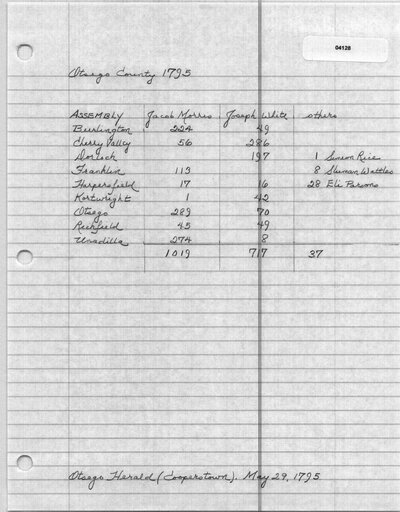 04128
Otsego County 1795
ASSEMBLY Jacob Morris Joseph White others
Burlington 224 49
Cherry Valley 56 286
Dorlach 197 1 Simeon Rice
Franklin 113 8 Sluman Wattles
Harpersfield 17 16 28 Eli Parsons
Kortwright 1 42
Otsego 289 70
Richfield 45 49
Unadilla 274 8
1019 717 37
Otsego Herald (Cooperstown). May 29, 1795